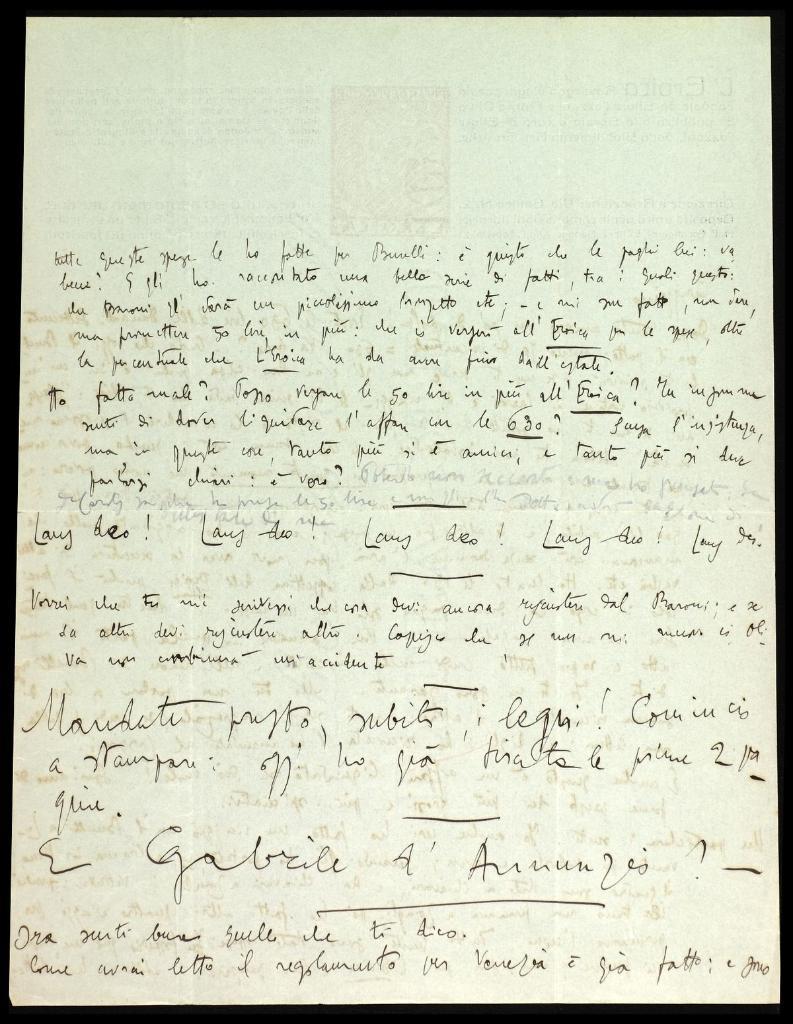 tutte queste spese le ho fatte per Burelli: è giusto che le paghi lui: va
bene? E gli ho raccontato una bella serie di fatti, tra i quali questo:
che Baroni gli darà un piccolissimo bronzetto etc; – e mi son fatto, non dare,
ma promettere 50 lire in più: che io verserò all'Eroica per le spese, oltre
la percentuale che L'Eroica ha da avere fino dall'estate.
Ho fatto male? Posso versare le 50 lire in più all'Eroica? Tu insomma
senti di dover liquidare l'affare con le 630? Scusa l'insistenza,
ma in queste cose, tanto più si è amici, e tanto più si deve
parlarsi chiari: è vero?
Laus deo! Laus deo! Laus deo! Laus deo! Laus deo.
Vorrei che tu mi scrivessi che cosa devi ancora riscuotere dal Baroni; e se
da altri devi riscuotere altro. Capisco che se non mi muovo io Oli:
va non combinerà un accidente
Mandate presto, subito, i legni! Comincio
a stampare: oggi ho già tirato le prime 2 pa
gine.
E Gabriele d'Annunzio? –
Ora senti bene quello che ti dico.
Come avrai letto il regolamento per Venezia è già fatto; e sono